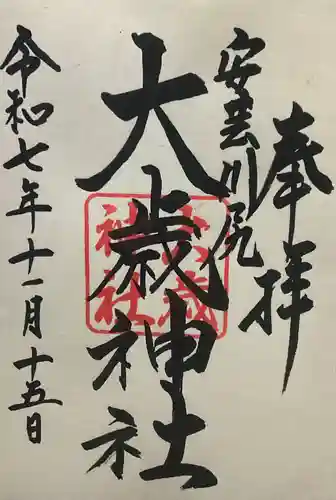 奉拝
安芸川尻
大歳神社
大歳
神社
令和七年十一月十五日